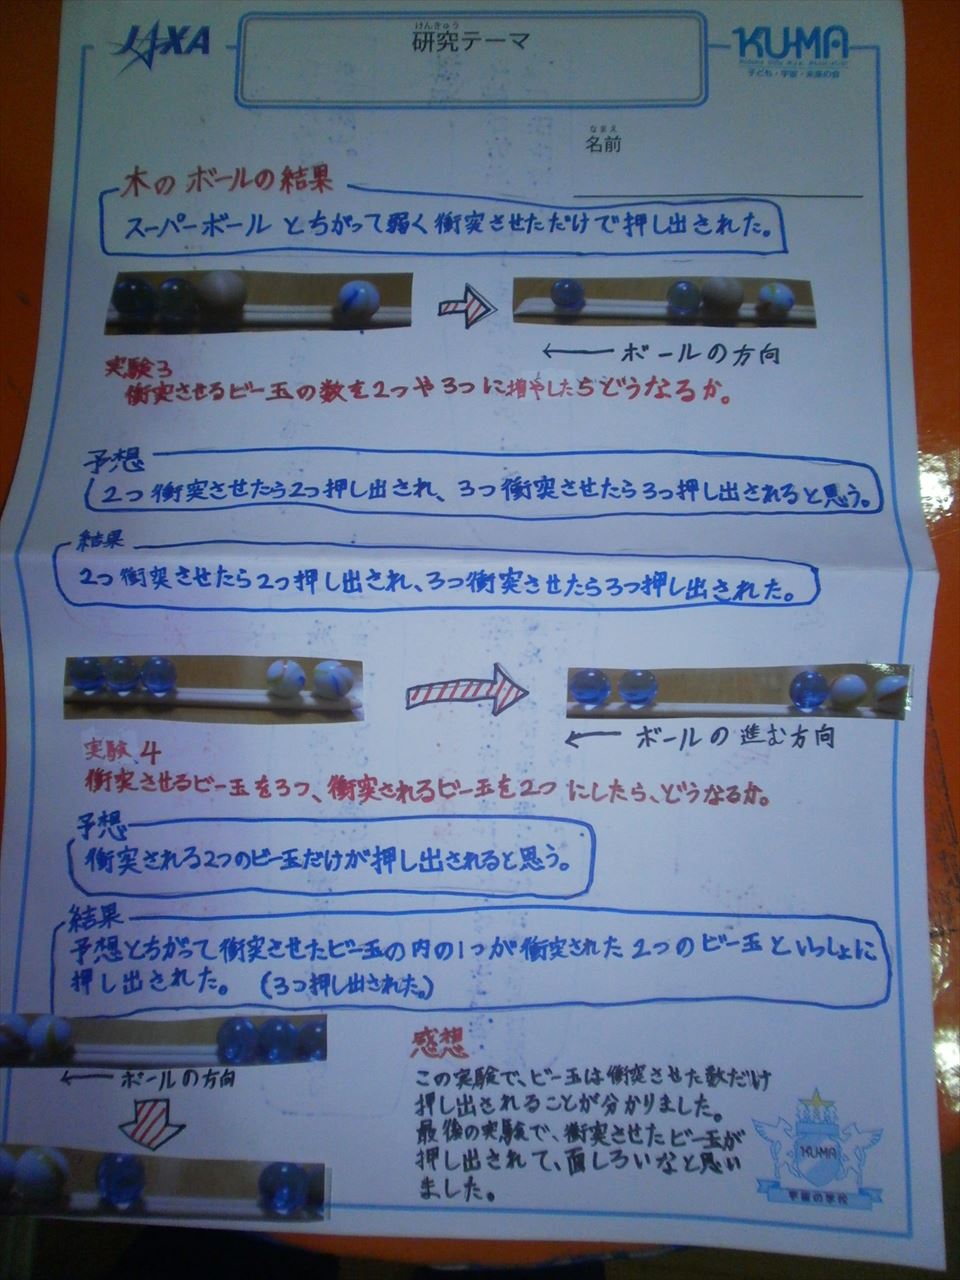 JAXA
けんきゅう
研究テーマ
KU-MA
子ども・宇宙・未来の会
なまえ
名前
木のボールの結果
スーパーボールとちがって弱く衝突させただけで押し出された。
← ボールの方向
実験3
衝突させるビー玉の数を2つや3つに増やしたらどうなるか。
予想
2つ衝突させたら2つ押し出され、3つ衝突させたら3つ押し出されると思う。
結果
2つ衝突させたら2つ押し出され、3つ衝突させたら3つ押し出された。
← ボールの進む方向
実験4
衝突させるビー玉を3つ、衝突されるビー玉を2つにしたら、どうなるか。
予想
衝突される2つのビー玉だけが押し出されると思う。
結果
予想とちがって衝突させたビー玉の内の1つが衝突された2つのビー玉といっしょに
押し出された。(3つ押し出された。)
← ボールの方向
感想
この実験で、ビー玉は衝突させた数だけ
押し出されることが分かりました。
最後の実験で、衝突させたビー玉が
押し出されて、面しろいなと思い
ました。
KUMA
宇宙の学校